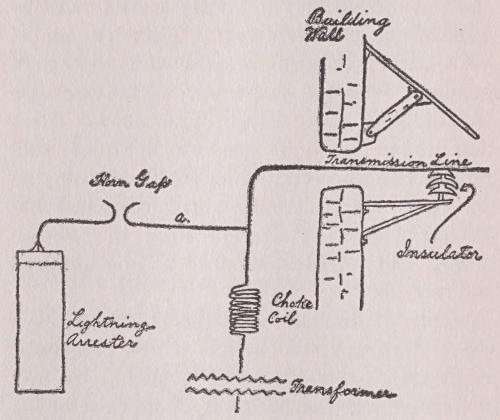 Building
Wall
Transmission Line
Horn Gap
a.
Insulator
Choke
Coil
Lightning
Arrester
Transformer